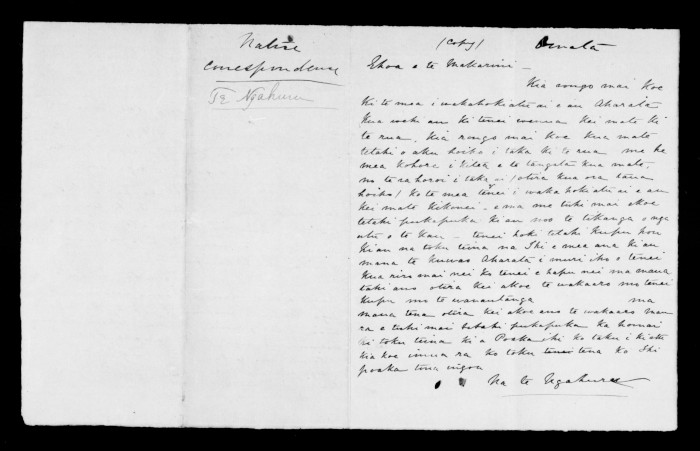 Native
Correspondence
Te Ngahuru
(Copy)
Ehoa e te Makarini -
Kia rongo mai koe
Ki te mea i wakahokiatu ai e au Aharata
Kua wehi au ki tenei wenua kei mate ki
te rua. Kia rongo mai koe kua mate
tetahi o aku hoiho i taka ki te rua me he
mea kohore i kitea e te tangata kua mate,
no te ra horoi i taka ai (otira kua ora taua
hoiho) Ko te mea tenei i waka hokiatu ai e au
kei mate kikonei - e ma me tuhi mai ekoe
tetahi pukapuka ki au mo te tikanga o nga
utu o te Kau - tenei hoki tetahi kupu hou
Kiau na toku teina na Ihi e mea ana ki au
mana te Aharata i muri iho o tenei
Kua riro mai nei ko tenei e hapu nei ma maua
tahi ano otira kei akoe te wakaaro mo tenei
Kupu mo te wanautanga ma
maua tena otira kei akoe ano te wakaaro
ra e tuhi mai tetahi pukapuka ka homai
ki toku teina ki a Poaka ihi ko taku i kiatu
kia koe inuia ra ko toku tena ko Ihi
poaka tona ingoa
Na te Ngahuru